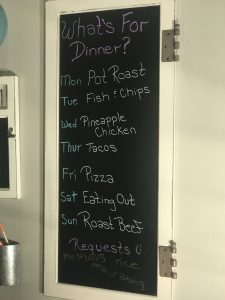 What's For
Dinner?
Mon Pot Roast
Tue Fish & Chips
Wed Pineapple
Chicken
Thur Tacos
Fri Pizza
Sat Eating Out
Sun Roast Beef
Requests
meatballs rice